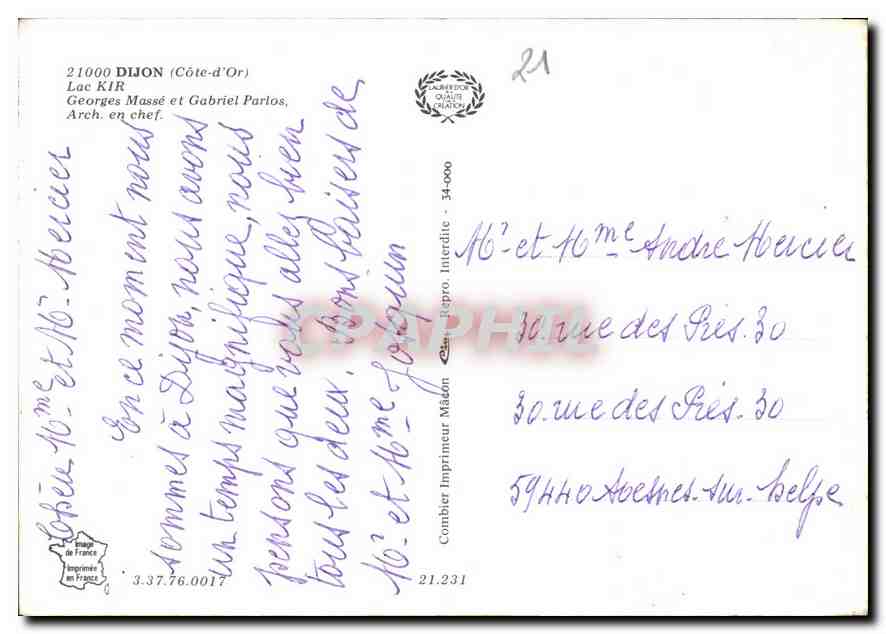 21000 DIJON (Côte-d'Or)
Lac KIR
Georges Massé et Gabriel Parlos,
Arch. en chef.
21
LAURIER D'OR
DE LA
QUALITÉ
CRÉATION
Mme et Mr Mercier
En ce moment nous
sommes à Dijon, nous avons
un temps magnifique, nous
pensons que vous allez bien
tous les deux. Bons baisers de
Mr et Mme
Combier Imprimeur Mâcon Cim Repro. Interdite - 34-000
Mr et Mme André Mercier
30 rue des Prés. 30
30 rue des Prés. 30
59440 Avesnes-sur-Helpe
Image
de France
Imprimée
en France
3.37.76.0017
21.231
CPAPHIL